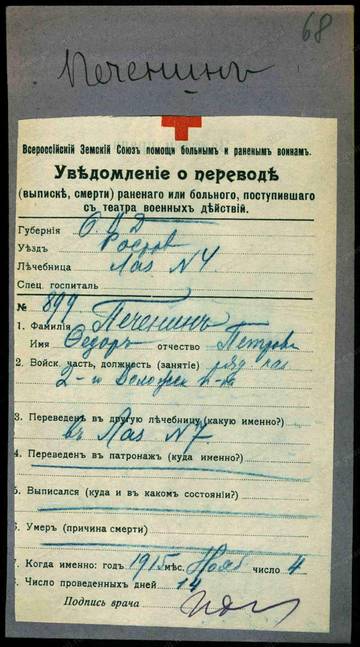 68
Печенинъ
Всероссійскій Земскій Союзъ помощи больнымъ и раненымъ воинамъ.
Увѣдомленіе о переводѣ
(выпискѣ, смерти) раненаго или больного, поступившаго
съ театра военныхъ дѣйствій.
Губернія О.В.Д
Уѣздъ Ростов
Лѣчебница Лаз N 4
Спец. госпиталь
№ 899
1. Фамилія Печенинъ
Имя Ѳедоръ отчество Петровъ
2. Войск. часть, должность (занятіе) ряд
2-й п-ка
3. Переведенъ въ другую лѣчебницу (какую именно?)
въ Лаз. N 7
4. Переведенъ въ патронажъ (куда именно?)
5. Выписался (куда и въ какомъ состояніи?)
6. Умеръ (причина смерти)
7. Когда именно: годъ 1915 мѣс. Нояб число 4
8. Число проведенныхъ дней 14
Подпись врача